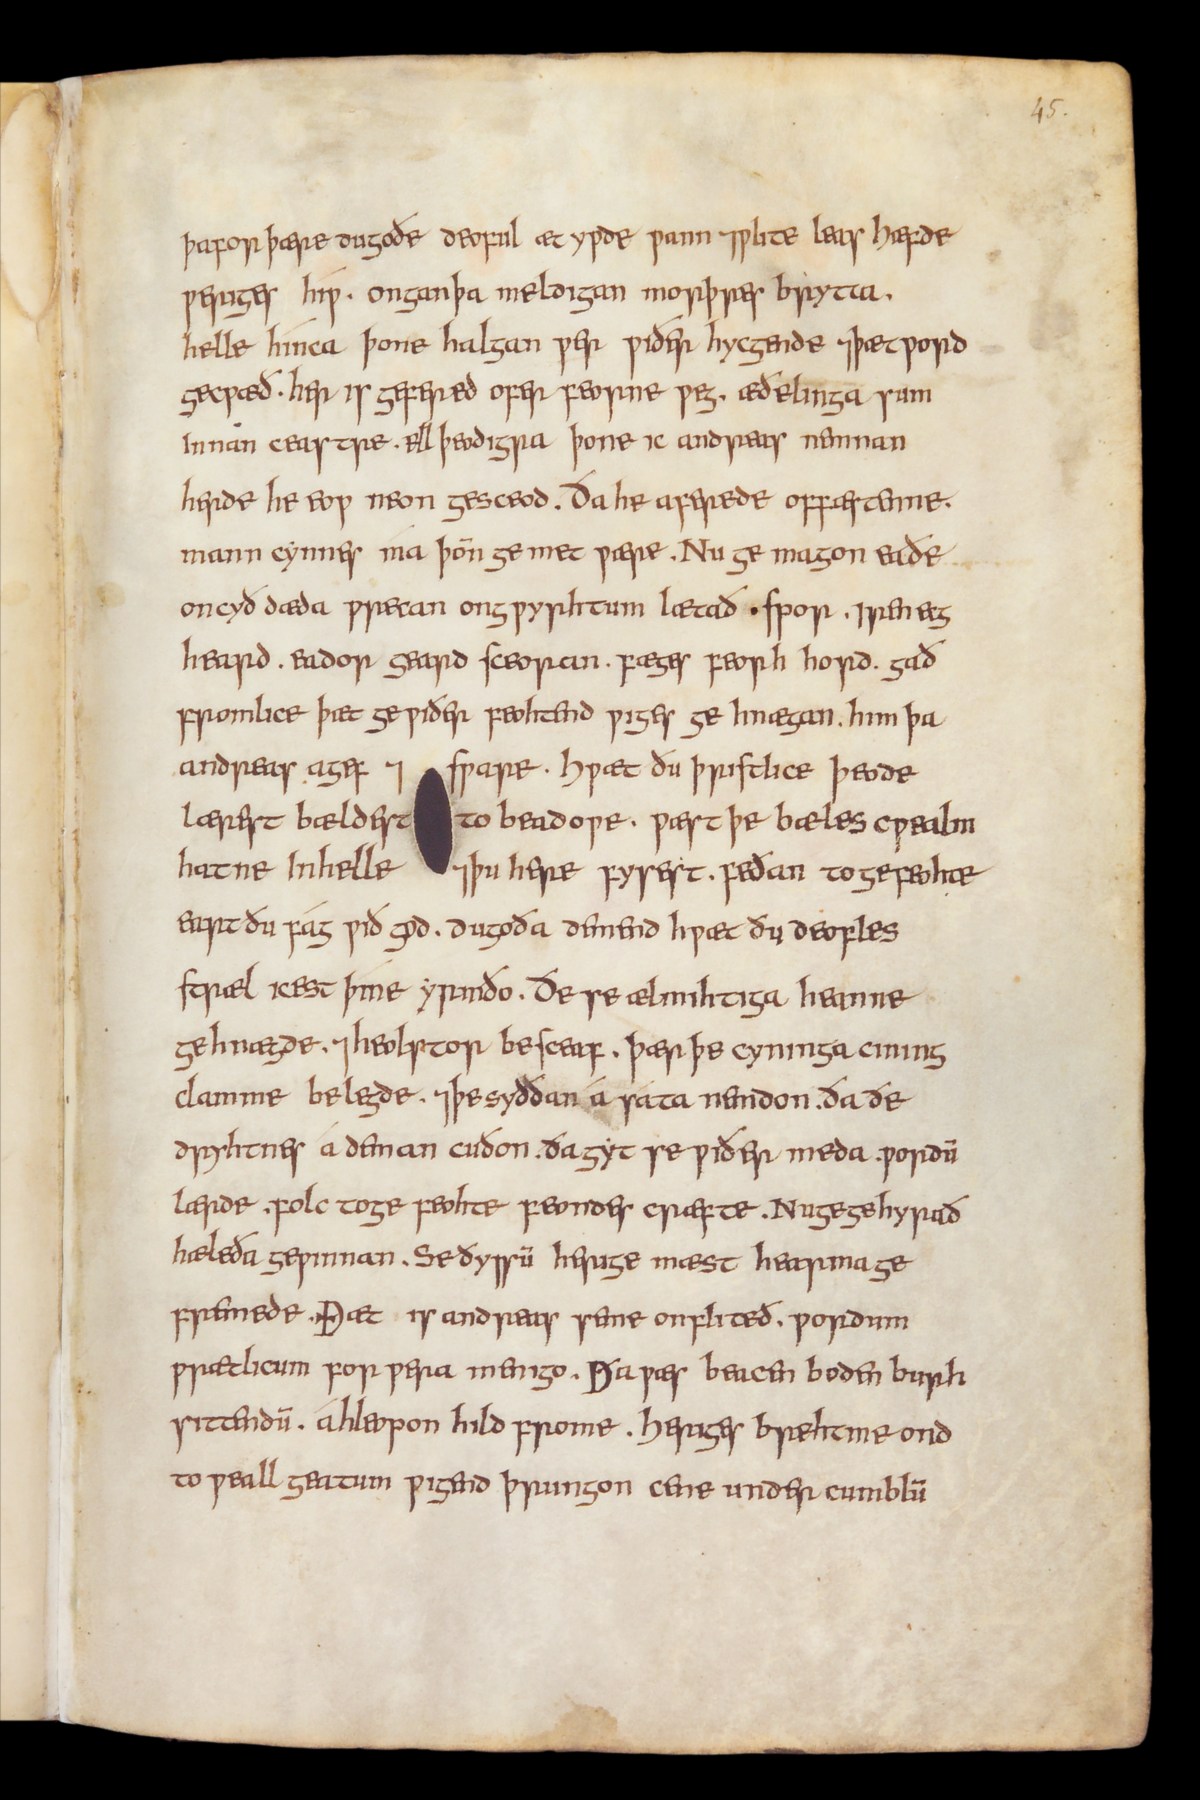 45.
þaforþære dugoðe deoful æt ypde ƿann ⁊ƿlite leas hæfde
ƿeriges hiƿ. onganþa meldigan morþres brytta.
helle hinca þone halgan ƿer ƿiðer hycgende ⁊þæt ƿord
gecƿæð. her is gefered ofer feorne ƿeg. æðelinga sum
innan ceastre. ell þeodigra þone ic andreas nemnan
herde he eoƿ neon gesceod. Ða he aferede of fæstenne.
mann cynnes má þoñ gemet ƿære. Nu ge magon eaðe
oncyð dæda ƿrecan ongƿyrhtum lætað. sƿor. irenecg
heard. eador geard sceoran. fæges feorh hord. gað
fromlice þæt ge ƿiðer feohtend ƿiges ge hnægan. him þa
andreas agef ⁊ sƿare. Hƿæt ðu þristlice þeode
lærest bældest to beadoƿe. ƿæst þe bæles cƿealm
hatne Inhelle ⁊þu here fysest. feðan to gefeohte
eart ðu fág ƿið gód. dugoða demend hƿæt ðu deofles
stræl icest þíne yrmðo. Ðe se ælmihtiga heanne
gehnægde. ⁊heolstor besceaf. þær þe cyninga cining
clamme belegde. ⁊þe syððan á sata nemdon. ða ðe
dryhtnes á deman cuðon. ða gyt se ƿiðer meda. ƿordū
lærde. folc toge feohte feondes cræfte. Nu ge gehyrað
hæleða geƿinnan. Se ðyssū herige mæst hearma ge
fremede. Þæt is andreas seme onfliteð. ƿordum
ƿrætlicum for ƿera menigo. Ða ƿæs beacen boden burh
sittendū. áhleoƿon hild frome. Heriges brehtme ond
to ƿeall geatum ƿigend þrungon cene under cumblū